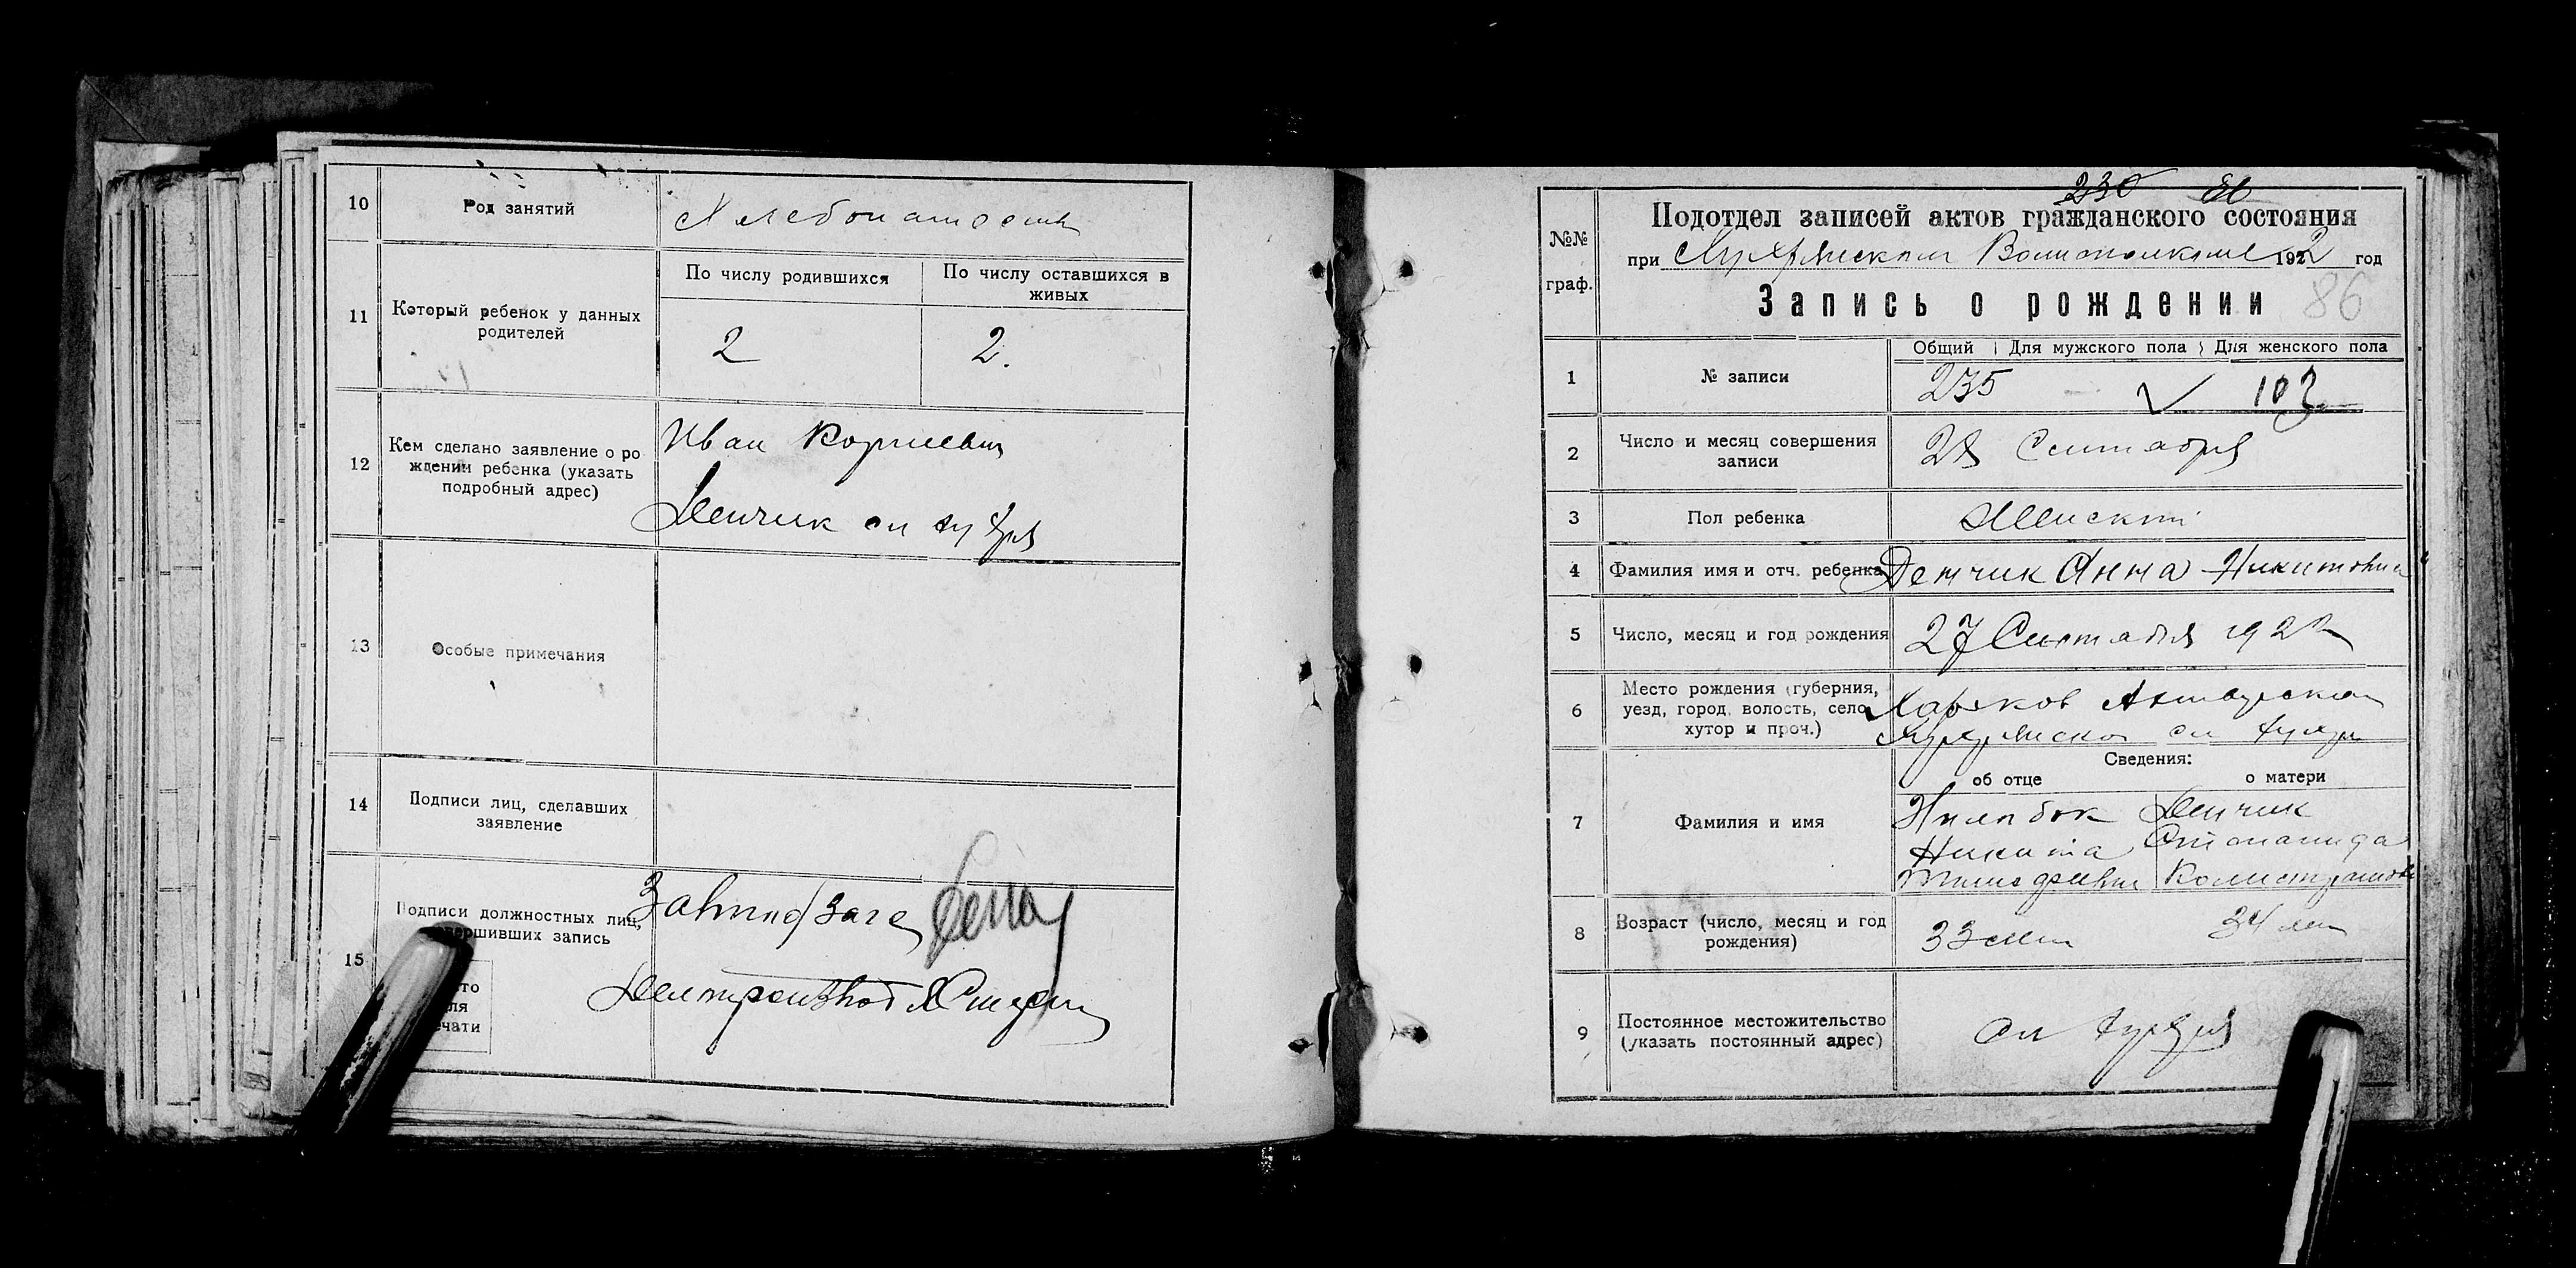 10
Род занятий
Хлебопашест
11
Который ребенок у данных
родителей
По числу родившихся
По числу оставшихся в
живых
2
2.
12
Кем сделано заявление о ро
ждении ребенка (указать
подробный адрес)
Иван Корнеевич
Демчик сл
13
Особые примечания
14
Подписи лиц, сделавших
заявление
15
Подписи должностных лиц,
вершивших запись
Завпод Загс
то
ля
ечати
Делопроизвод
230 86
№№
граф.
Подотдел записей актов гражданского состояния
при Волисполкоме 1922 год
Запись о рождении 86
1
№ записи
Общий Для мужского пола Для женского пола
235 - 103
2
Число и месяц совершения
записи
28 Сентября
3
Пол ребенка
Женский
4
Фамилия имя и отч. ребенка
Демчик Анна Никитовна
5
Число, месяц и год рождения
27 Сентября 1922
6
Место рождения (губерния,
уезд, город, волость, село,
хутор и проч.)
Харьков Ахтырской
сл
Сведения:
об отце
о матери
7
Фамилия и имя
Демчик
Никита
8
Возраст (число, месяц и год
рождения)
33 лет
34 лет
9
Постоянное местожительство
(указать постоянный адрес)
сл